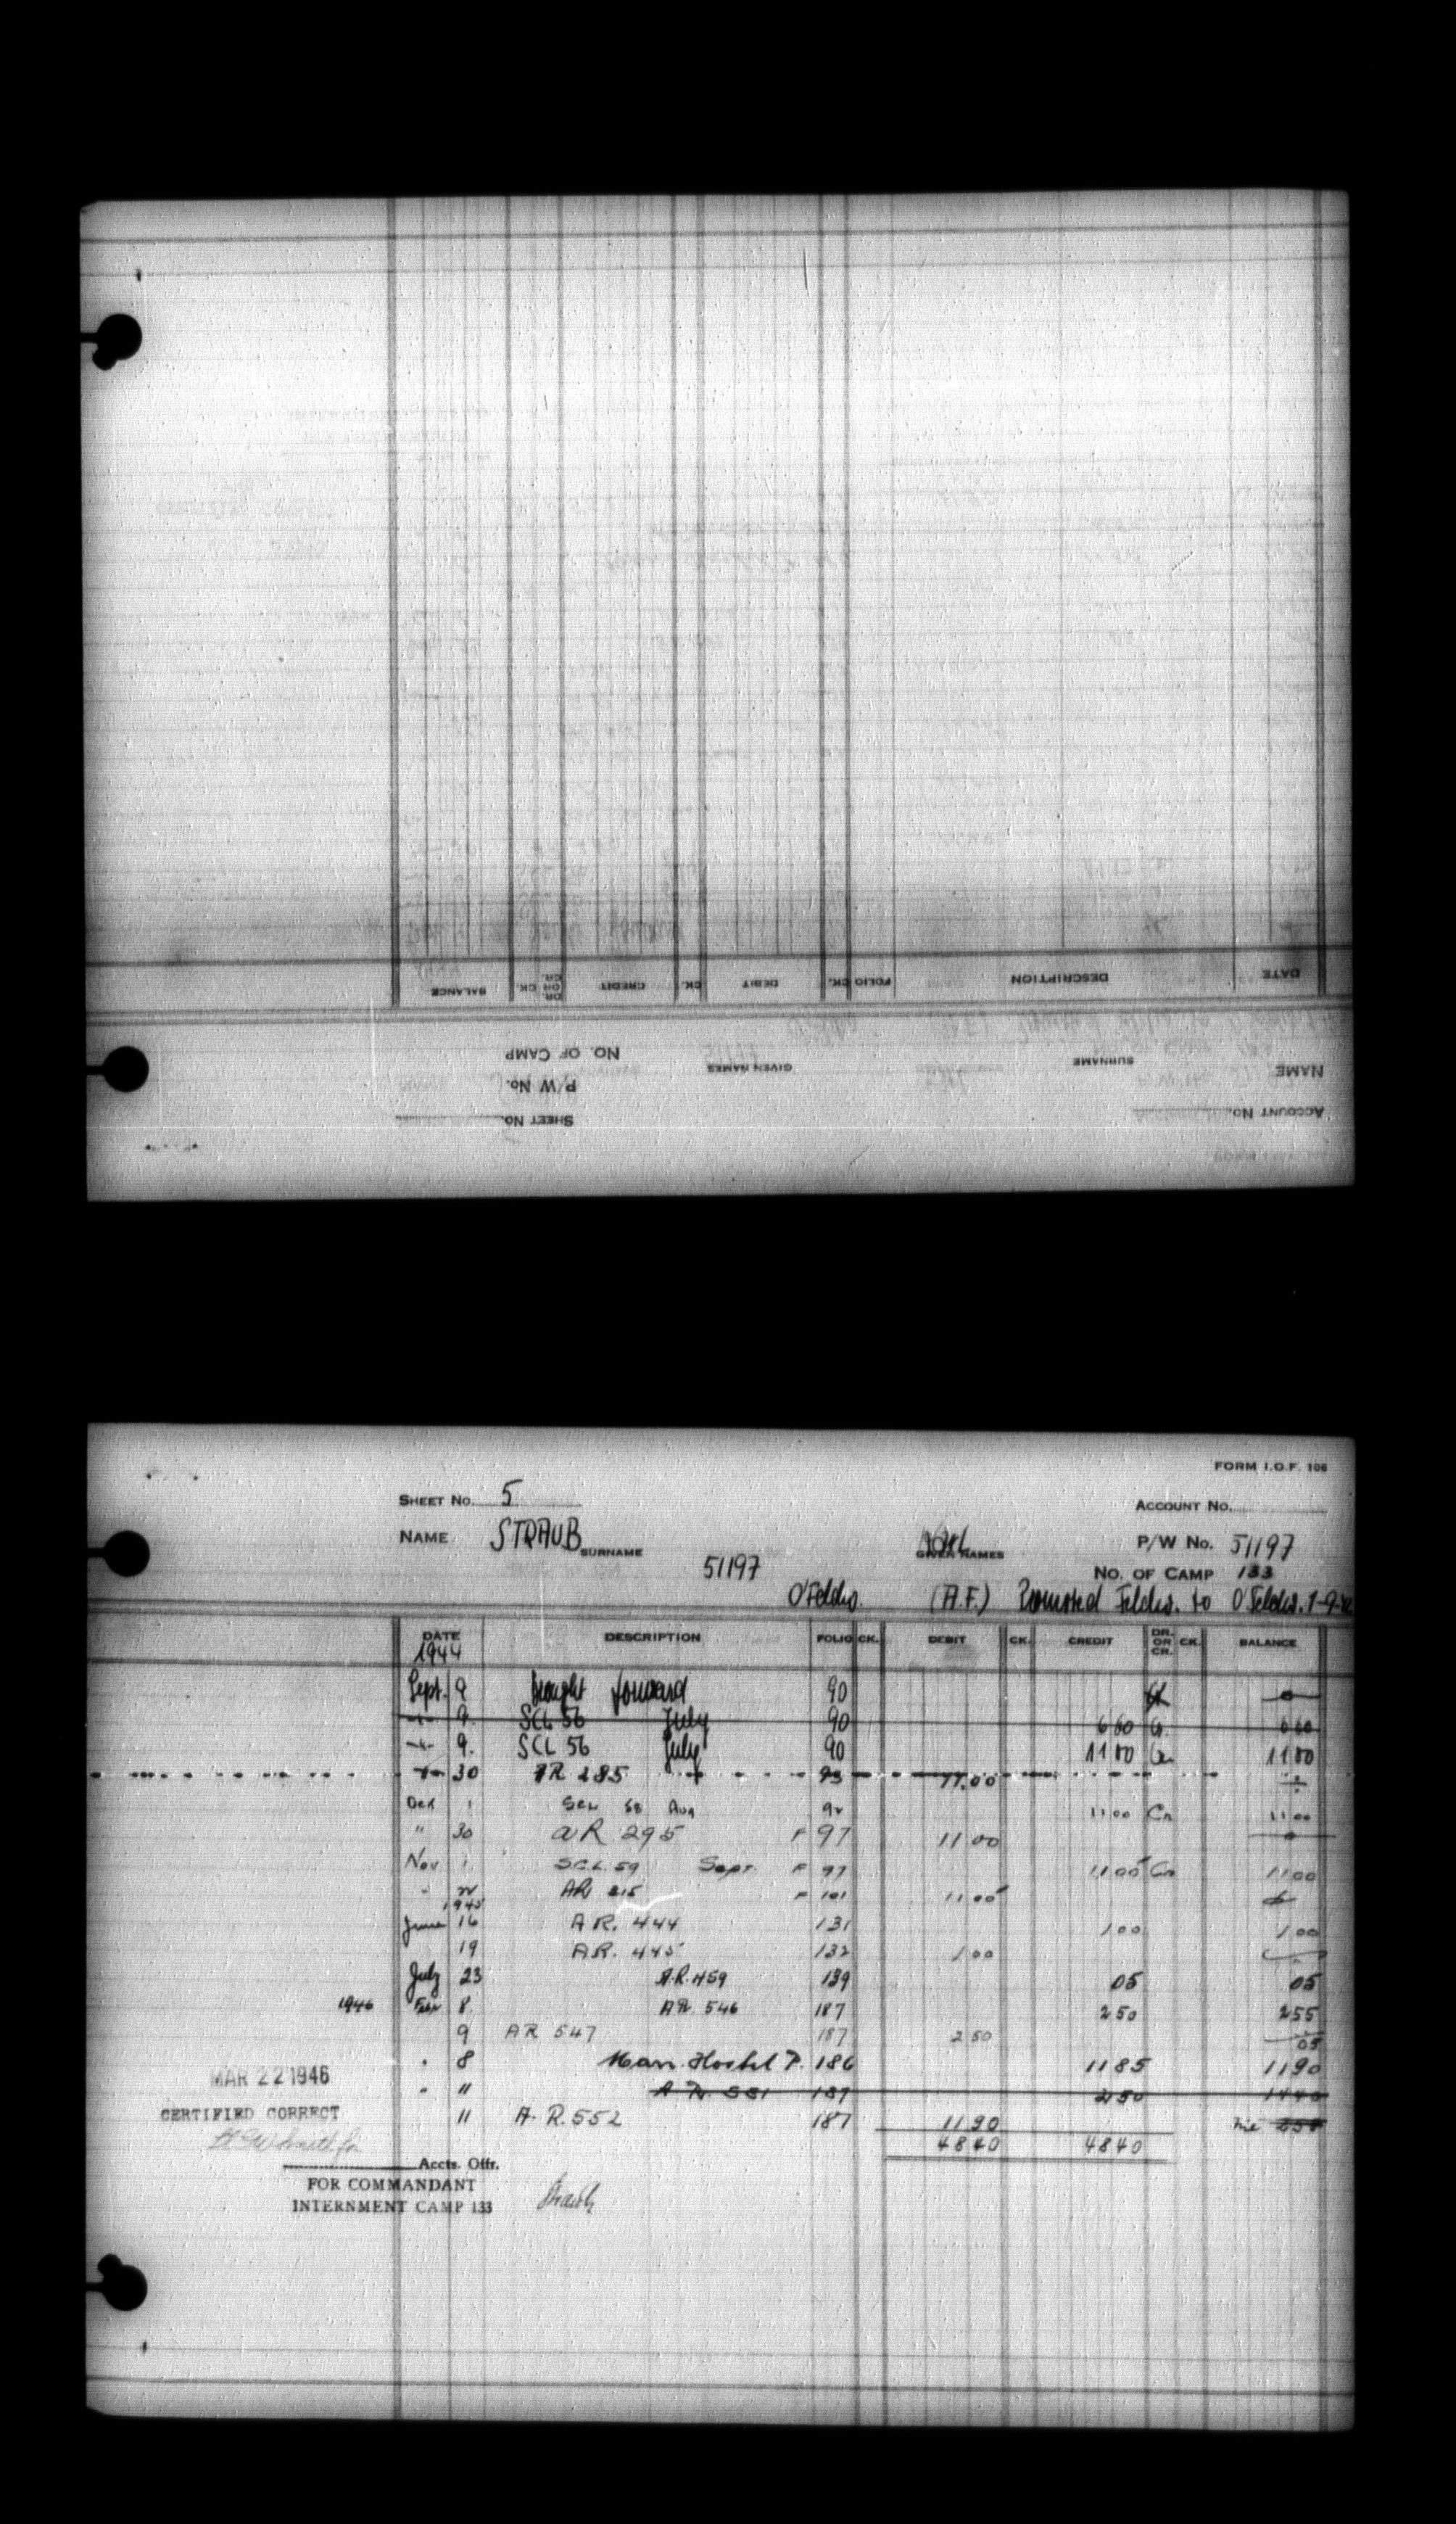 DATE DESCRIPTION FOLIO CK. DEBIT CK. CREDIT DR. OR CR. CK. BALANCE
NAME SURNAME GIVEN NAMES NO. OF CAMP
P/W No.
ACCOUNT No. SHEET No.
FORM I.O.F. 106
SHEET No. 5 ACCOUNT No.
NAME STRAUB SURNAME GIVEN NAMES P/W No. 51197
51197 No. OF CAMP 133
O'Feldw. (A.F.) Promoted Feldw. to O'Feldw. 1-9-
DATE DESCRIPTION FOLIO CK. DEBIT CK. CREDIT DR. OR CR. CK. BALANCE
1944
Sept. 9 brought forward 90
9. SCL 56 July 90 6 60 Cr. 6 60
9. SCL 56 July 90 11 00 Cr 11 00
30 AR 285 93 11.00
Oct 1 SCL 58 Aug 92 11 00 Cr 11 00
" 30 AR 295 F 97 11 00
Nov 1 SCL 59 Sept F 97 11 00 Cr 11 00
AR 315 F 101 11 00
1945
June 16 A R. 444 131 1 00 1 00
19 AR. 445 132 1 00
July 23 A.R. 459 139 05 05
1946 Feb 8 AR 546 187 2 50 2 55
9 AR 547 187 2 50 05
" 8 Man. Hostel P. 186 11 85 11 90
" 11 A R. 551 187 2 50 14 40
11 A. R. 552 187 11 90 nil 2 50
48 40 48 40
MAR 22 1946
CERTIFIED CORRECT
Accts. Offr.
FOR COMMANDANT
INTERNMENT CAMP 133
Straub